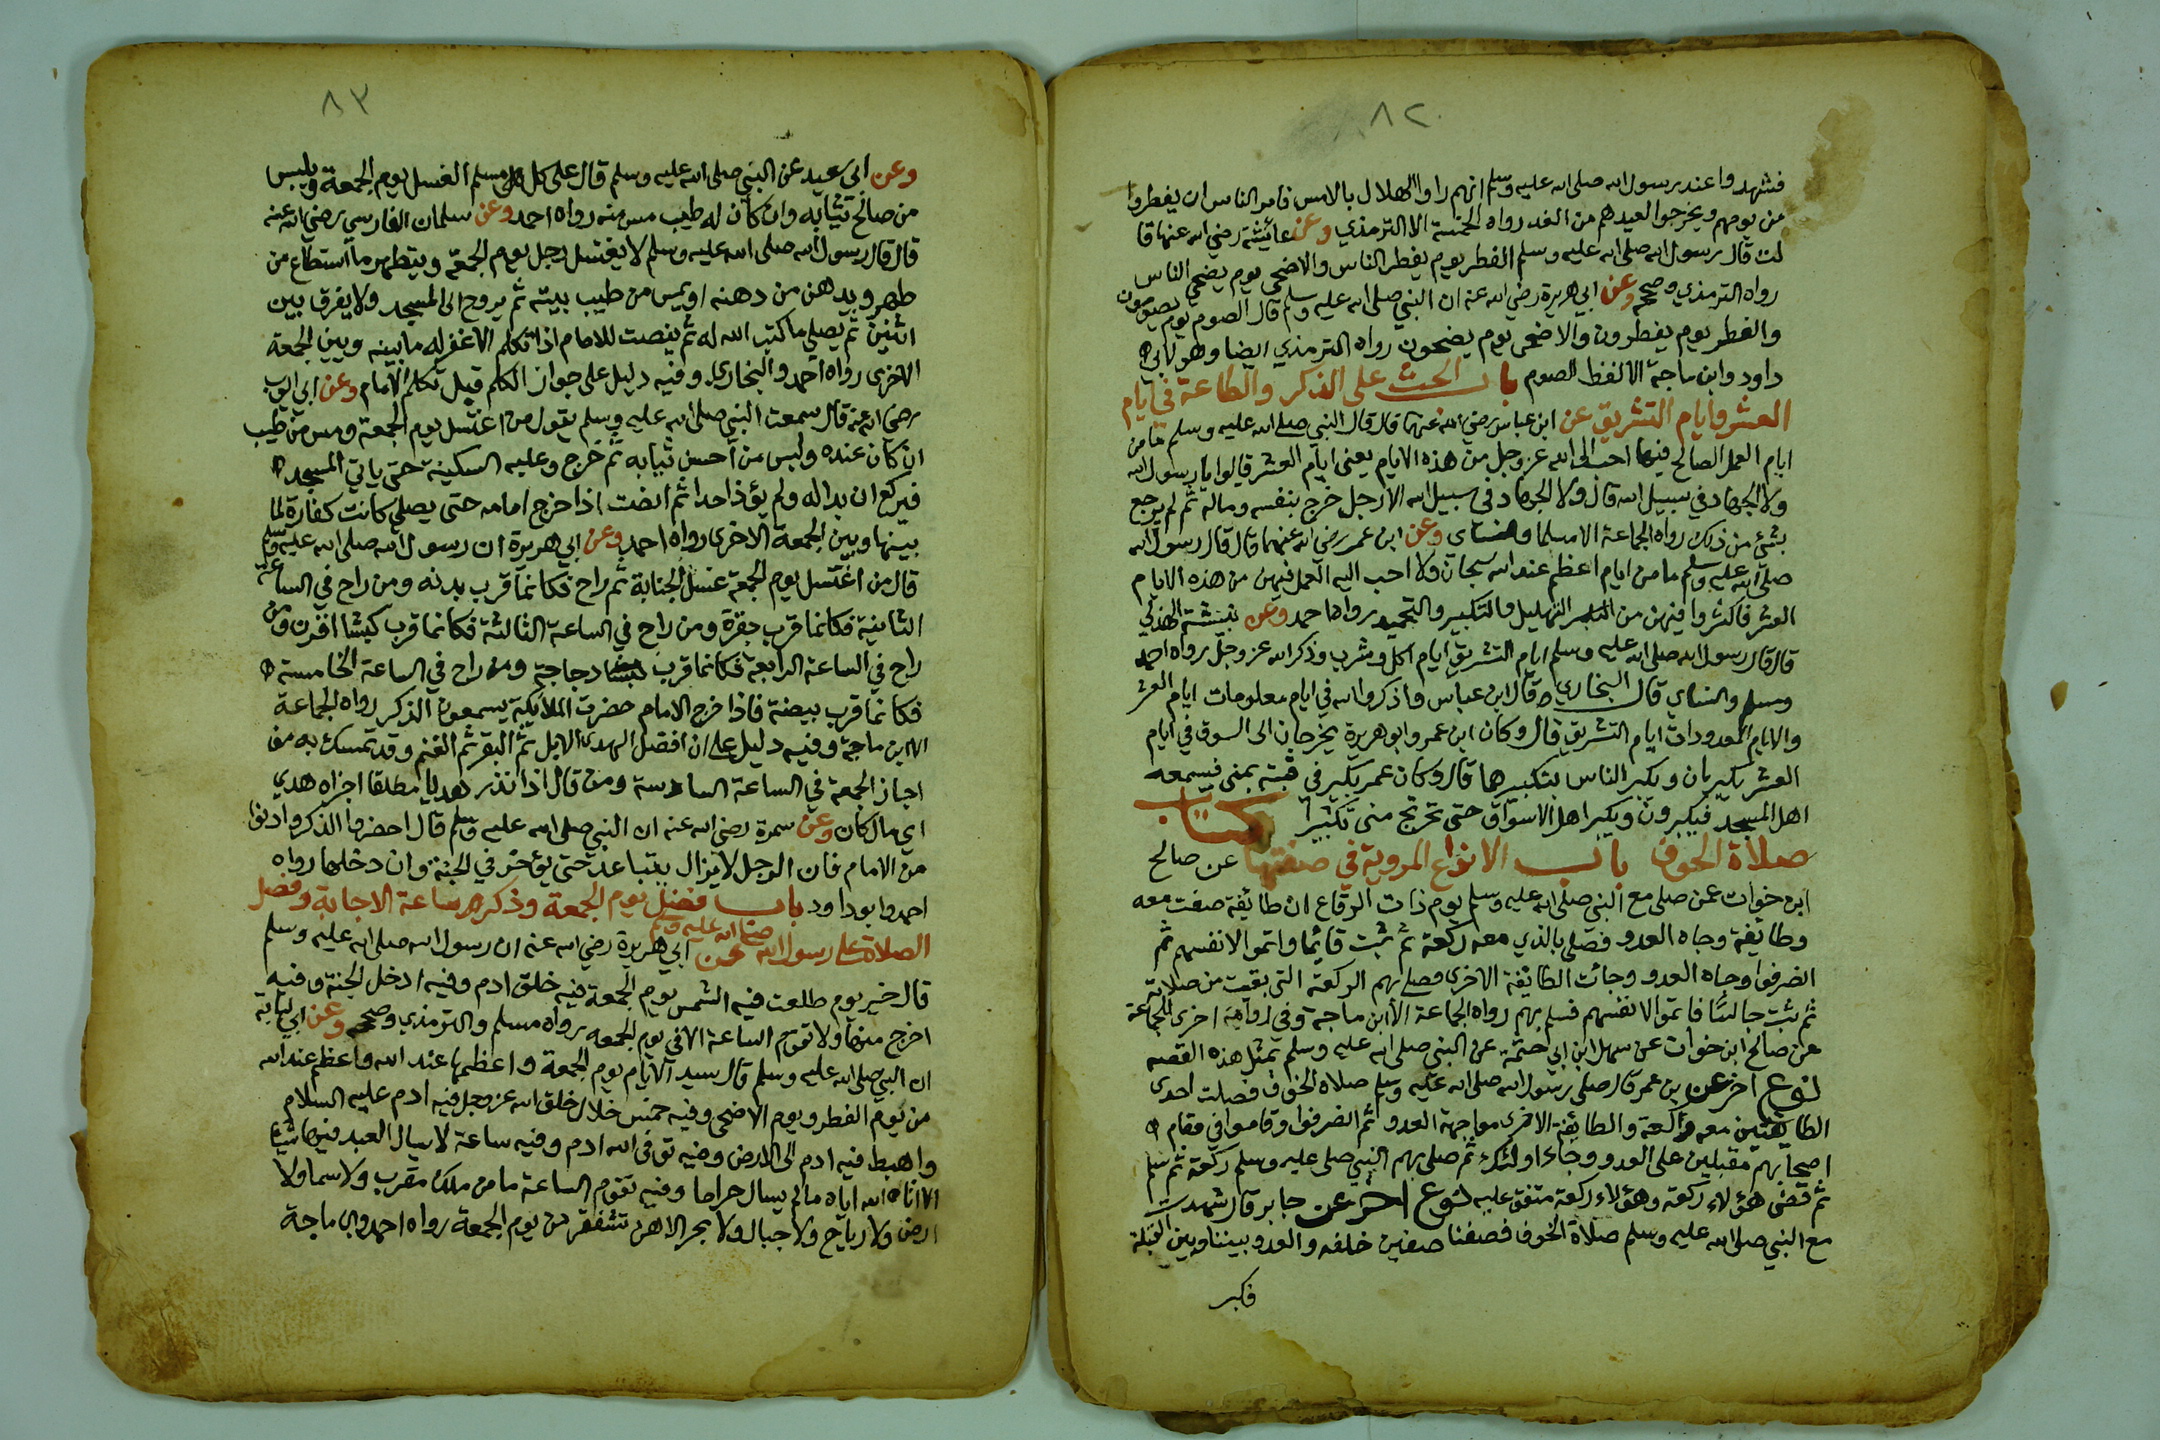 ٨٢
فشهدوا عند رسول الله صلى الله عليه وسلم انهم راوا الهلال بالامس فامر الناس ان يفطروا
من يومهم ويخرجوا لعيدهم من الغد رواه الخمسة الا الترمذي وعن عائشة رضي الله عنها قا
لت قال رسول الله صلى الله عليه وسلم الفطر يوم يفطر الناس والاضحى يوم يضحي الناس
رواه الترمذي وصححه وعن ابي هريرة رضي الله عنه ان النبي صلى الله عليه وسلم قال الصوم يوم يصومون
والفطر يوم يفطرون والاضحى يوم يضحون رواه الترمذي ايضا وهو لابي
داود وابن ماجة الا لفظ الصوم باب الحث على الذكر والطاعة في ايام
العشر وايام التشريق عن ابن عباس رضي الله عنهما قال قال النبي صلى الله عليه وسلم ما من
ايام العمل الصالح فيها احب الى الله عز وجل من هذه الايام يعني ايام العشر قالوا يا رسول الله
ولا الجهاد في سبيل الله قال ولا الجهاد في سبيل الله الا رجل خرج بنفسه وماله ثم لم يرجع
بشئ من ذلك رواه الجماعة الا مسلما والنساى وعن ابن عمر رضي الله عنهما قال قال رسول الله
صلى الله عليه وسلم ما من ايام اعظم عند الله سبحانه ولا احب اليه العمل فيهن من هذه الايام
العشر فاكثروا فيهن من التهليل والتكبير والتحميد رواه احمد وعن نبيشة الهذلي
قال قال رسول الله صلى الله عليه وسلم ايام التشريق ايام اكل وشرب وذكر الله عز وجل رواه احمد
ومسلم والنساي قال البخاري وقال ابن عباس واذكروا الله في ايام معلومات ايام العشر
والايام المعدودات ايام التشريق قال وكان ابن عمر وابو هريرة يخرجان الى السوق في ايام
العشر يكبران ويكبر الناس بتكبيرهما قال وكان عمر يكبر في قبته بمنى فيسمعه
اهل المسجد فيكبرون ويكبر اهل الاسواق حتى ترتج منى تكبيرا كتاب
صلاة الخوف باب الانواع المروية في صفتها عن صالح
ابن خوات عمن صلى مع النبي صلى الله عليه وسلم يوم ذات الرقاع ان طائفة صفت معه
وطائفة وجاه العدو فصلى بالذي معه ركعة ثم ثبت قائما واتموا لانفسهم ثم
انصرفوا وجاه العدو وجائت الطائفة الاخرى فصلى بهم الركعة التي بقيت من صلاته
ثم ثبت جالسا فاتموا لانفسهم فسلم بهم رواه الجماعة الا ابن ماجة وفي رواية اخرى للجماعة
عن صالح ابن خوات عن سهل ابن ابي حثمة عن النبي صلى الله عليه وسلم بمثل هذه القصه
نوع اخر عن بن عمر قال صلى رسول الله صلى الله عليه وسلم صلاة الخوف فصلت احدى
الطايفتين معه ركعة والطايفة الاخرى مواجهة العدو ثم انصرفوا وقاموا في مقام
اصحابهم مقبلين على العدو وجاء اولئك ثم صلى بهم النبي صلى عليه وسلم ركعة ثم سلم
ثم قضى هؤلاء ركعة وهؤلاء ركعة متفق عليه نوع اخر عن جابر قال شهدت
مع النبي صلى الله عليه وسلم صلاة الخوف فصفنا صفين خلفه والعدو بيننا وبين القبلة
فكبر
٨٣
وعن ابي سعيد عن النبي صلى الله عليه وسلم قال على كل مسلم الغسل يوم الجمعة ويلبس
من صالح ثيابه وان كان له طيب مس منه رواه احمد وعن سلمان الفارسي رضي الله عنه
قال قال رسول الله صلى الله عليه وسلم لا يغتسل رجل يوم الجمعة ويتطهر ما استطاع من
طهر ويدهن من دهنه او يمس من طيب بيته ثم يروح الى المسجد ولا يفرق بين
اثنين ثم يصلي ما كتب الله له ثم ينصت للامام اذا تكلم الا غفر له ما بينه وبين الجمعة
الاخرى رواه احمد والبخاري وفيه دليل على جواز الكلام قبل تكلم الامام وعن ابي ايوب
رضي الله عنه قال سمعت النبي صلى الله عليه وسلم يقول من اغتسل يوم الجمعة ومس من طيب
ان كان عنده ولبس من احسن ثيابه ثم خرج وعليه السكينة حتى ياتي المسجد
فيركع ان بدا له ولم يؤذ احدا ثم انصت اذا خرج امامه حتى يصلي كانت كفارة لما
بينها وبين الجمعة الاخرى رواه احمد وعن ابي هريرة ان رسول الله صلى الله عليه وسلم
قال من اغتسل يوم الجمعة غسل الجنابة ثم راح فكانما قرب بدنه ومن راح في الساعة
الثانية فكانما قرب بقرة ومن راح في الساعة الثالثة فكانما قرب كبشا اقرن ومن
راح في الساعة الرابعة فكانما قرب دجاجة ومن راح في الساعة الخامسة
فكانما قرب بيضة فاذا خرج الامام حضرت الملايكة يسمعون الذكر رواه الجماعة
الا ابن ماجة وفيه دليل على ان افضل الهدي الابل ثم البقر ثم الغنم وقد تمسك به من
اجاز الجمعة في الساعة السادسة ومن قال اذا نذر هديا مطلقا اجزاه هدي
اي مال كان وعن سمرة رضي الله عنه ان النبي صلى الله عليه وسلم قال احضروا الذكر وادنوا
من الامام فان الرجل لا يزال يتباعد حتى يؤخر في الجنة وان دخلها رواه
احمد وابو داود باب فضل يوم الجمعة وذكر ساعة الاجابة وفضل
الصلاة على رسول الله صلى الله عليه وسلم عن ابي هريرة رضي الله عنه ان رسول الله صلى الله عليه وسلم
قال خير يوم طلعت فيه الشمس يوم الجمعة فيه خلق ادم وفيه ادخل الجنة وفيه
اخرج منها ولا تقوم الساعة الا في يوم الجمعه رواه مسلم والترمذي وصححه وعن ابي لبابة
ان النبي صلى الله عليه وسلم قال سيد الايام يوم الجمعة واعظمها عند الله واعظم عند الله
من يوم الفطر ويوم الاضحى وفيه خمس خلال خلق الله عز وجل فيه ادم عليه السلام
واهبط فيه ادم الى الارض وفيه توفى الله ادم وفيه ساعة لا يسال العبد فيها شيئا
الا اتاه الله اياه مالم يسال حراما وفيه تقوم الساعة ما من ملك مقرب ولا سما ولا
ارض ولا رياح ولا جبال ولا بحر الا هن تشفقن من يوم الجمعة رواه احمد وابن ماجة